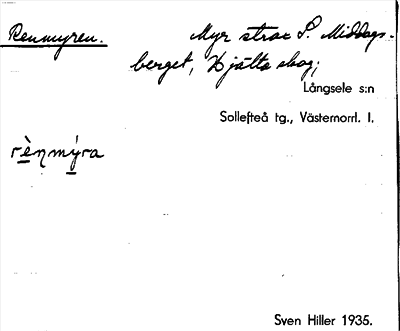 Renmyren. Myr strax S. Middags-
berget, Hjälta skog;
Långsele s:n
Sollefteå tg., Västernorrl. l.
rènmýra
Sven Hiller 1935.